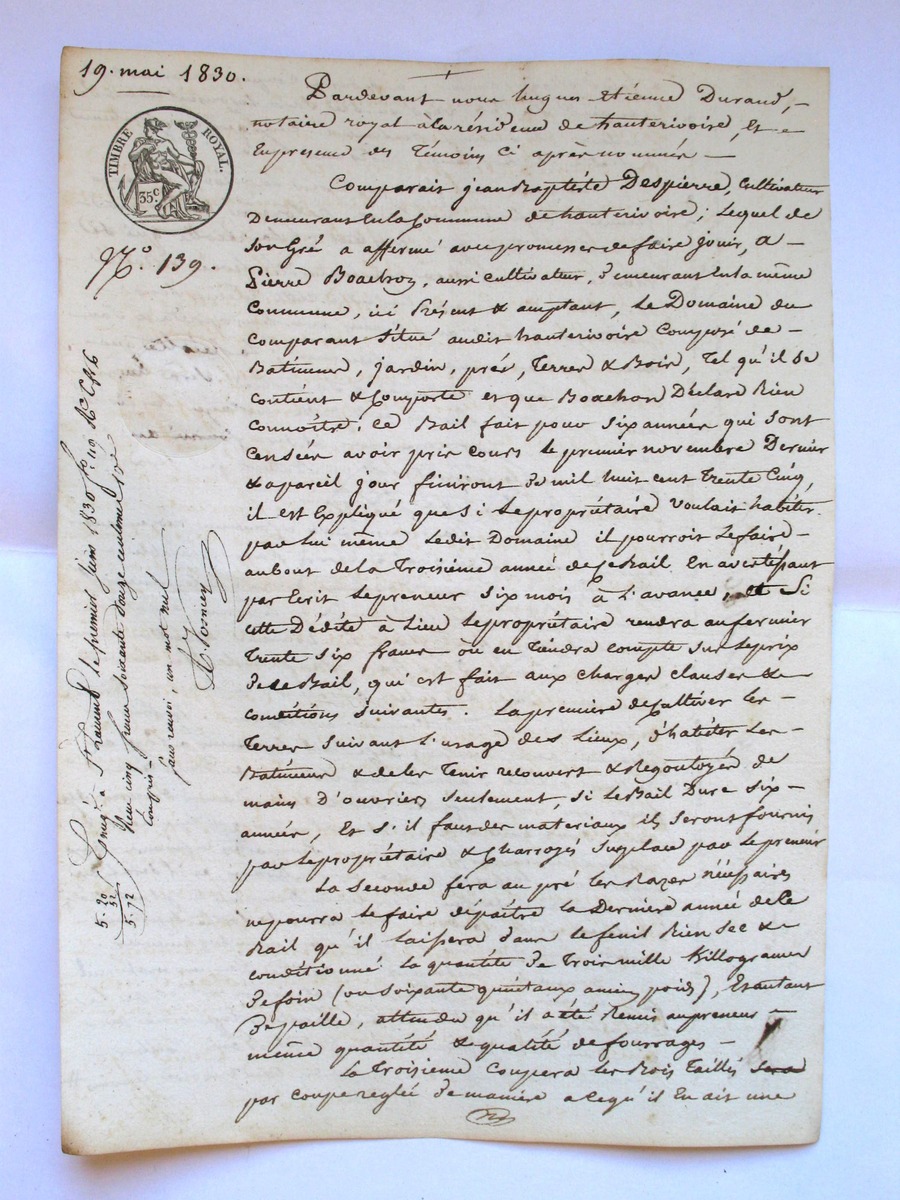 19. mai 1830.
TIMBRE ROYAL.
35c
No. 139.
Pardevant nous hugues etienne Durand,
notaire royal à la résidence de hauterivoire, Et
En presence des Témoins Ci après nommés
Comparait jean Baptiste Despierre, Cultivateur
Demeurant En la Commune de hauterivoire; Lequel de
Son Gré a affermé avec promesse de faire jouir, A
Pierre Boachon, aussi Cultivateur, Demeurant En la même
Commune, ici Présent & acceptant, Le Domaine du
Comparant Situé audit hauterivoire Composé de
Batiments, jardin, prés, Terres & Bois, Tel qu'il Se
Contient & Comporte et que Boachon Déclare Bien
Connoître; Ce Bail fait pour Six années qui Sont
Censées avoir pris Cours Le premier novembre Dernier
& apareil jour finiront De mil huit cent Trente Cinq,
il est Expliqué que Si Le propriétaire Voulait habiter
par Lui même Ledit Domaine il pourroit Le faire
au bout de la Troisième année de Ce Bail En avertissant
par Ecrit Le preneur Six mois à L'avance, Si
Cette Dédite à Lieu Le propriétaire rendra au fermier
Trente Six francs ou en Tiendra compte Sur Le prix
De Ce Bail, qui est fait aux Charges Clauses &
Conditions Suivantes. La premiere de Cultiver Les
Terres Suivant L'usage des Lieux, D'habiter Les
Batiments & de les Tenir recouvert & Regoutoyés de
mains D'ouvriers Seulement, Si Le Bail Dure Six
années, Et S'il faut des materiaux ils Seront fournis
par Le propriétaire & Charroyés Sur place par Le preneur
La Seconde fera au pré Les Razes nécessaires
ne pourra Le faire dépaître La Derniere année de Ce
Bail qu'il Laissera dans Le fenil Bien Sec &
Conditionné La quantité de Trois mille Killogrames
De foin (ou Soixante quintaux ancien poids), Et autant
De paille, attendu qu'il a été Remis au preneur
même quantité & qualité de fourrages
La Troisieme Coupera Les Bois Taillis
par Coupe reglée De maniere a Ce qu'il En ait une
Le premier juin 1830
Neuf cinq francs soixante douze centimes
Compris
Sans renvoi, un mot nul
5. 20
52
5. 72